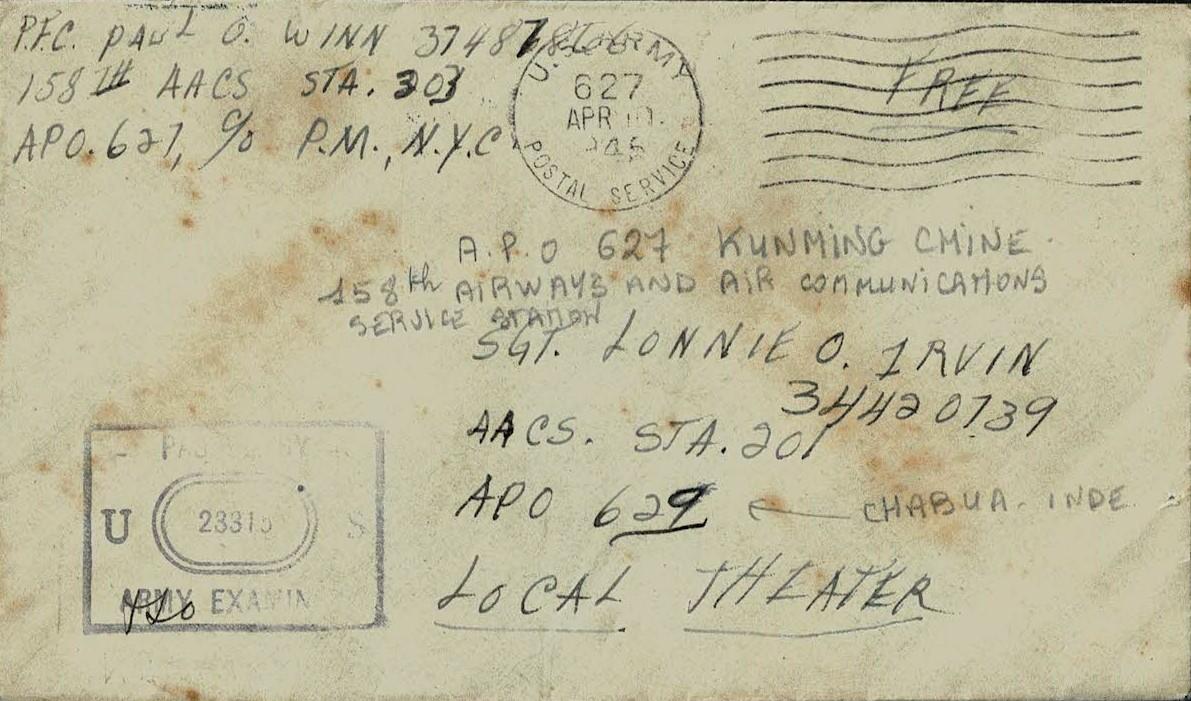 P.F.C. PAUL O. WINN
158TH AACS STA. 203
APO. 627, c/o P.M., N.Y.C
U.S. ARMY
627
APR
POSTAL SERVICE
FREE
A.P.O 627 KUNMING CHINE
158th AIRWAYS AND AIR COMMUNICATIONS
SERVICE STATION
SGT. LONNIE O. IRVIN
34420739
AACS. STA. 201
APO 629 CHABUA. INDE
LOCAL THEATER
U S
ARMY EXAMIN